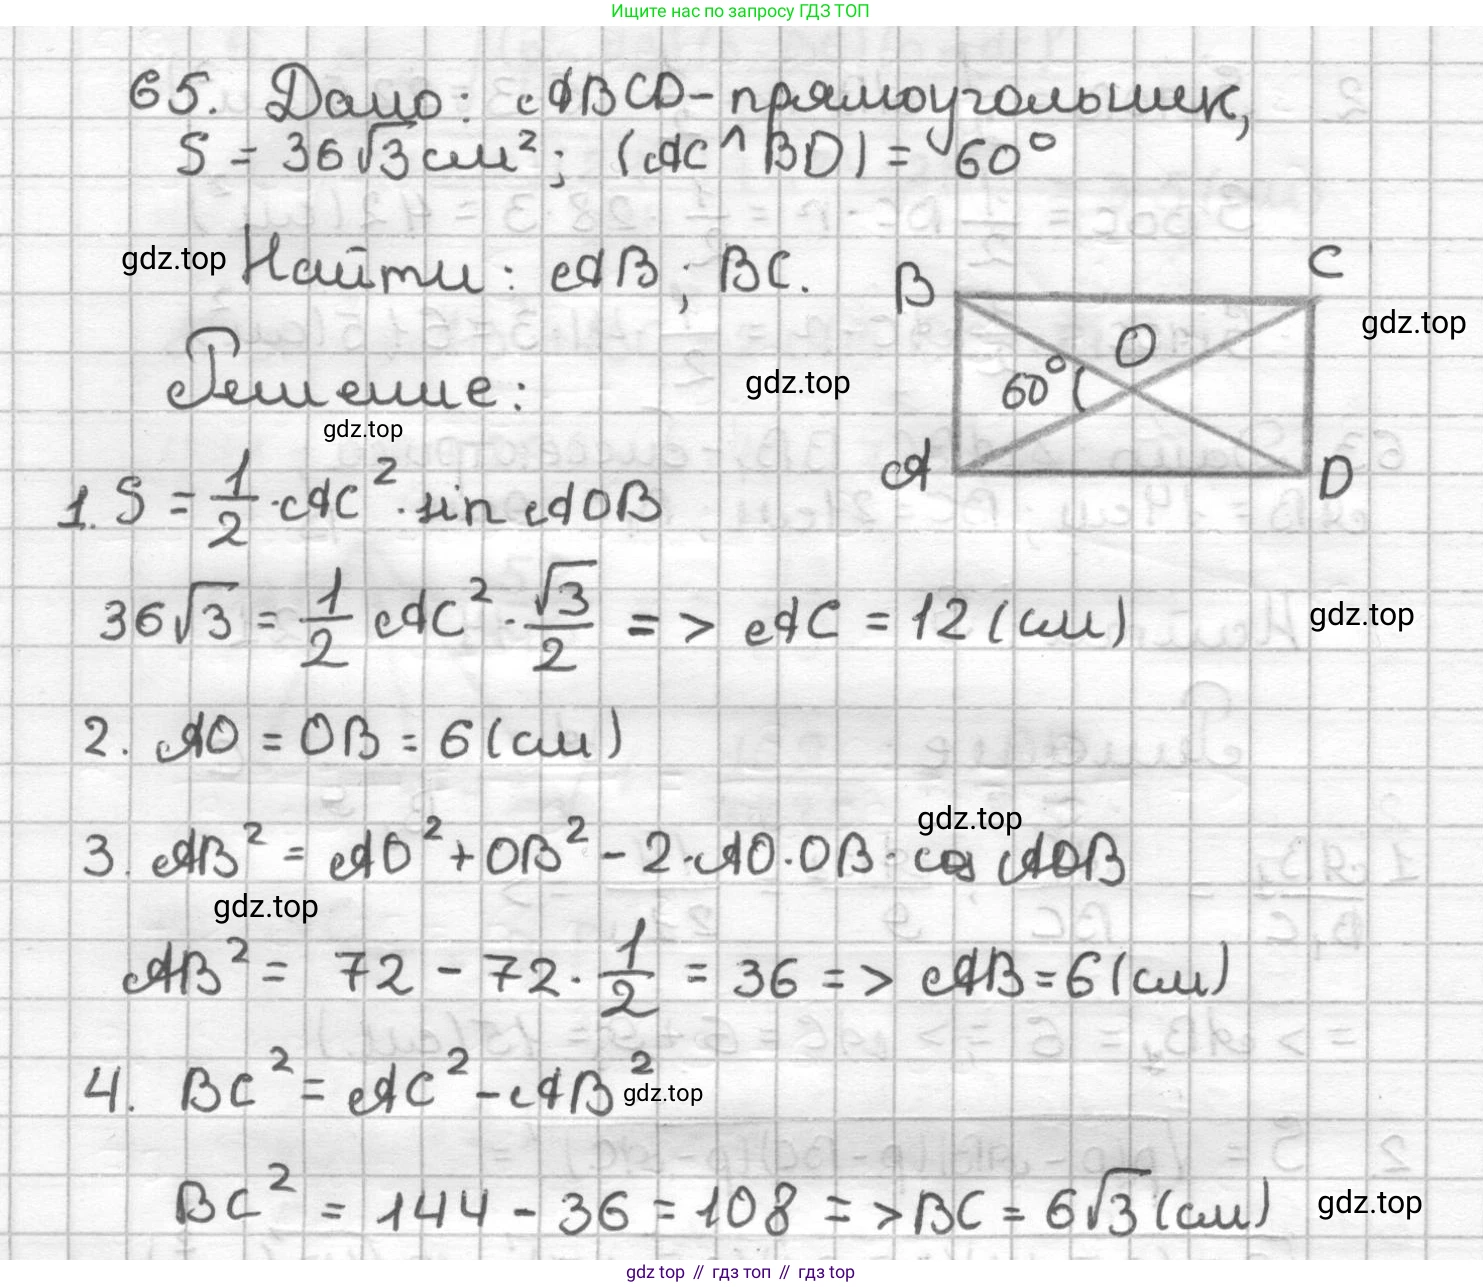 Ищите нас по запросу ГДЗ ТОП
65. Дано: ABCD - прямоугольник,
S = 36√3 см²; (AC ^ BD) = 60°
gdz.top
Найти: AB; BC.
B
C
gdz.top
O
60°
A
D
Решение:
gdz.top
gdz.top
1. S = 1/2 · AC² · sin AOB
36√3 = 1/2 AC² · √3/2 => AC = 12 (см)
gdz.top
2. AO = OB = 6 (см)
gdz.top
3. AB² = AO² + OB² - 2 · AO · OB · cos AOB
gdz.top
AB² = 72 - 72 · 1/2 = 36 => AB = 6 (см)
4. BC² = AC² - AB²
gdz.top
BC² = 144 - 36 = 108 => BC = 6√3 (см)
gdz.top
gdz top // гдз топ // гдз top